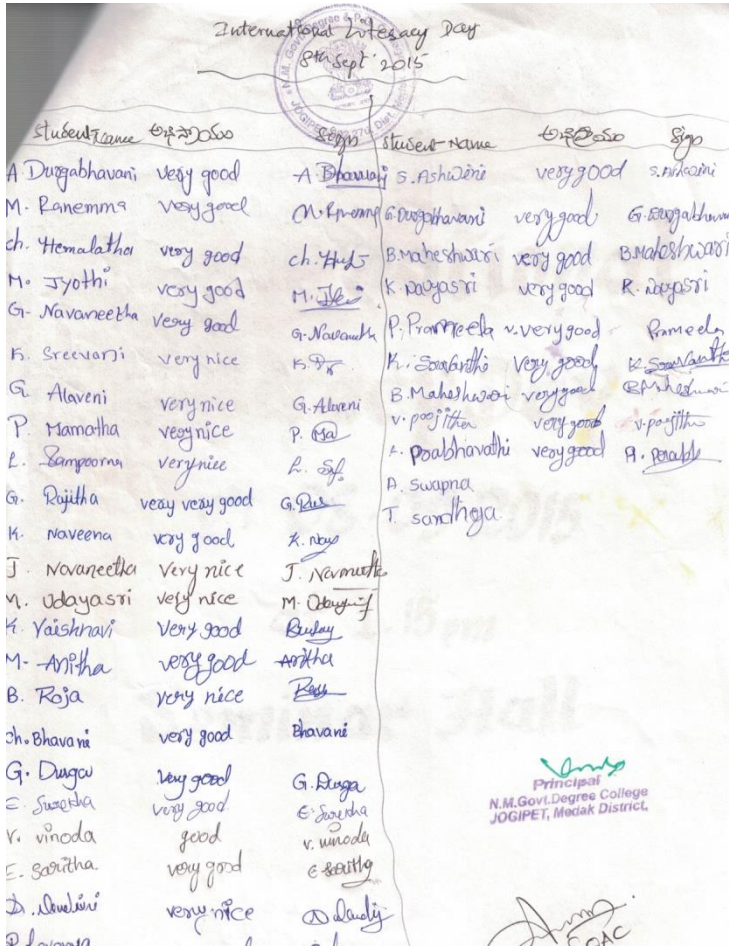 International Literacy Day
8th Sept 2015
N.M. Govt. Degree & P.G. College
JOGIPET
Student Name అభిప్రాయం Sign
A. Durgabhavani very good A Bhavani
M. Ranemma very good
ch. Hemalatha very good
M. Jyothi very good
G. Navaneetha very good G. Navaneetha
K. Sreevani very nice
G. Alaveni very nice G. Alaveni
P. Mamatha very nice P. Ma
L. Sampoorna very nice
G. Rajitha very very good
K. Naveena very good
J. Navaneetha very nice J. Navaneetha
M. Udayasri very nice
K. Vaishnavi very good
M. Anitha very good Anitha
B. Roja very nice
Ch. Bhavani very good Bhavani
G. Durga very good G. Durga
E. Surekha very good E. Surekha
V. vinoda good V. vinoda
E. Saritha very good E Saritha
very nice
Student Name అభిప్రాయం Sign
S. Ashwini very good S. Ashwini
G. Durgabhavani very good G. Durgabhavani
B. Maheshwari very good B. Maheshwari
K. Navyasri very good K. Navyasri
P. Prameela v. very good Prameela
very good
B. Maheshwari very good B. Maheshwari
V. poojitha very good V. poojitha
Prabhavathi very good
A. Swapna
T. sandhya
Principal
N.M.Govt.Degree College
JOGIPET, Medak District.